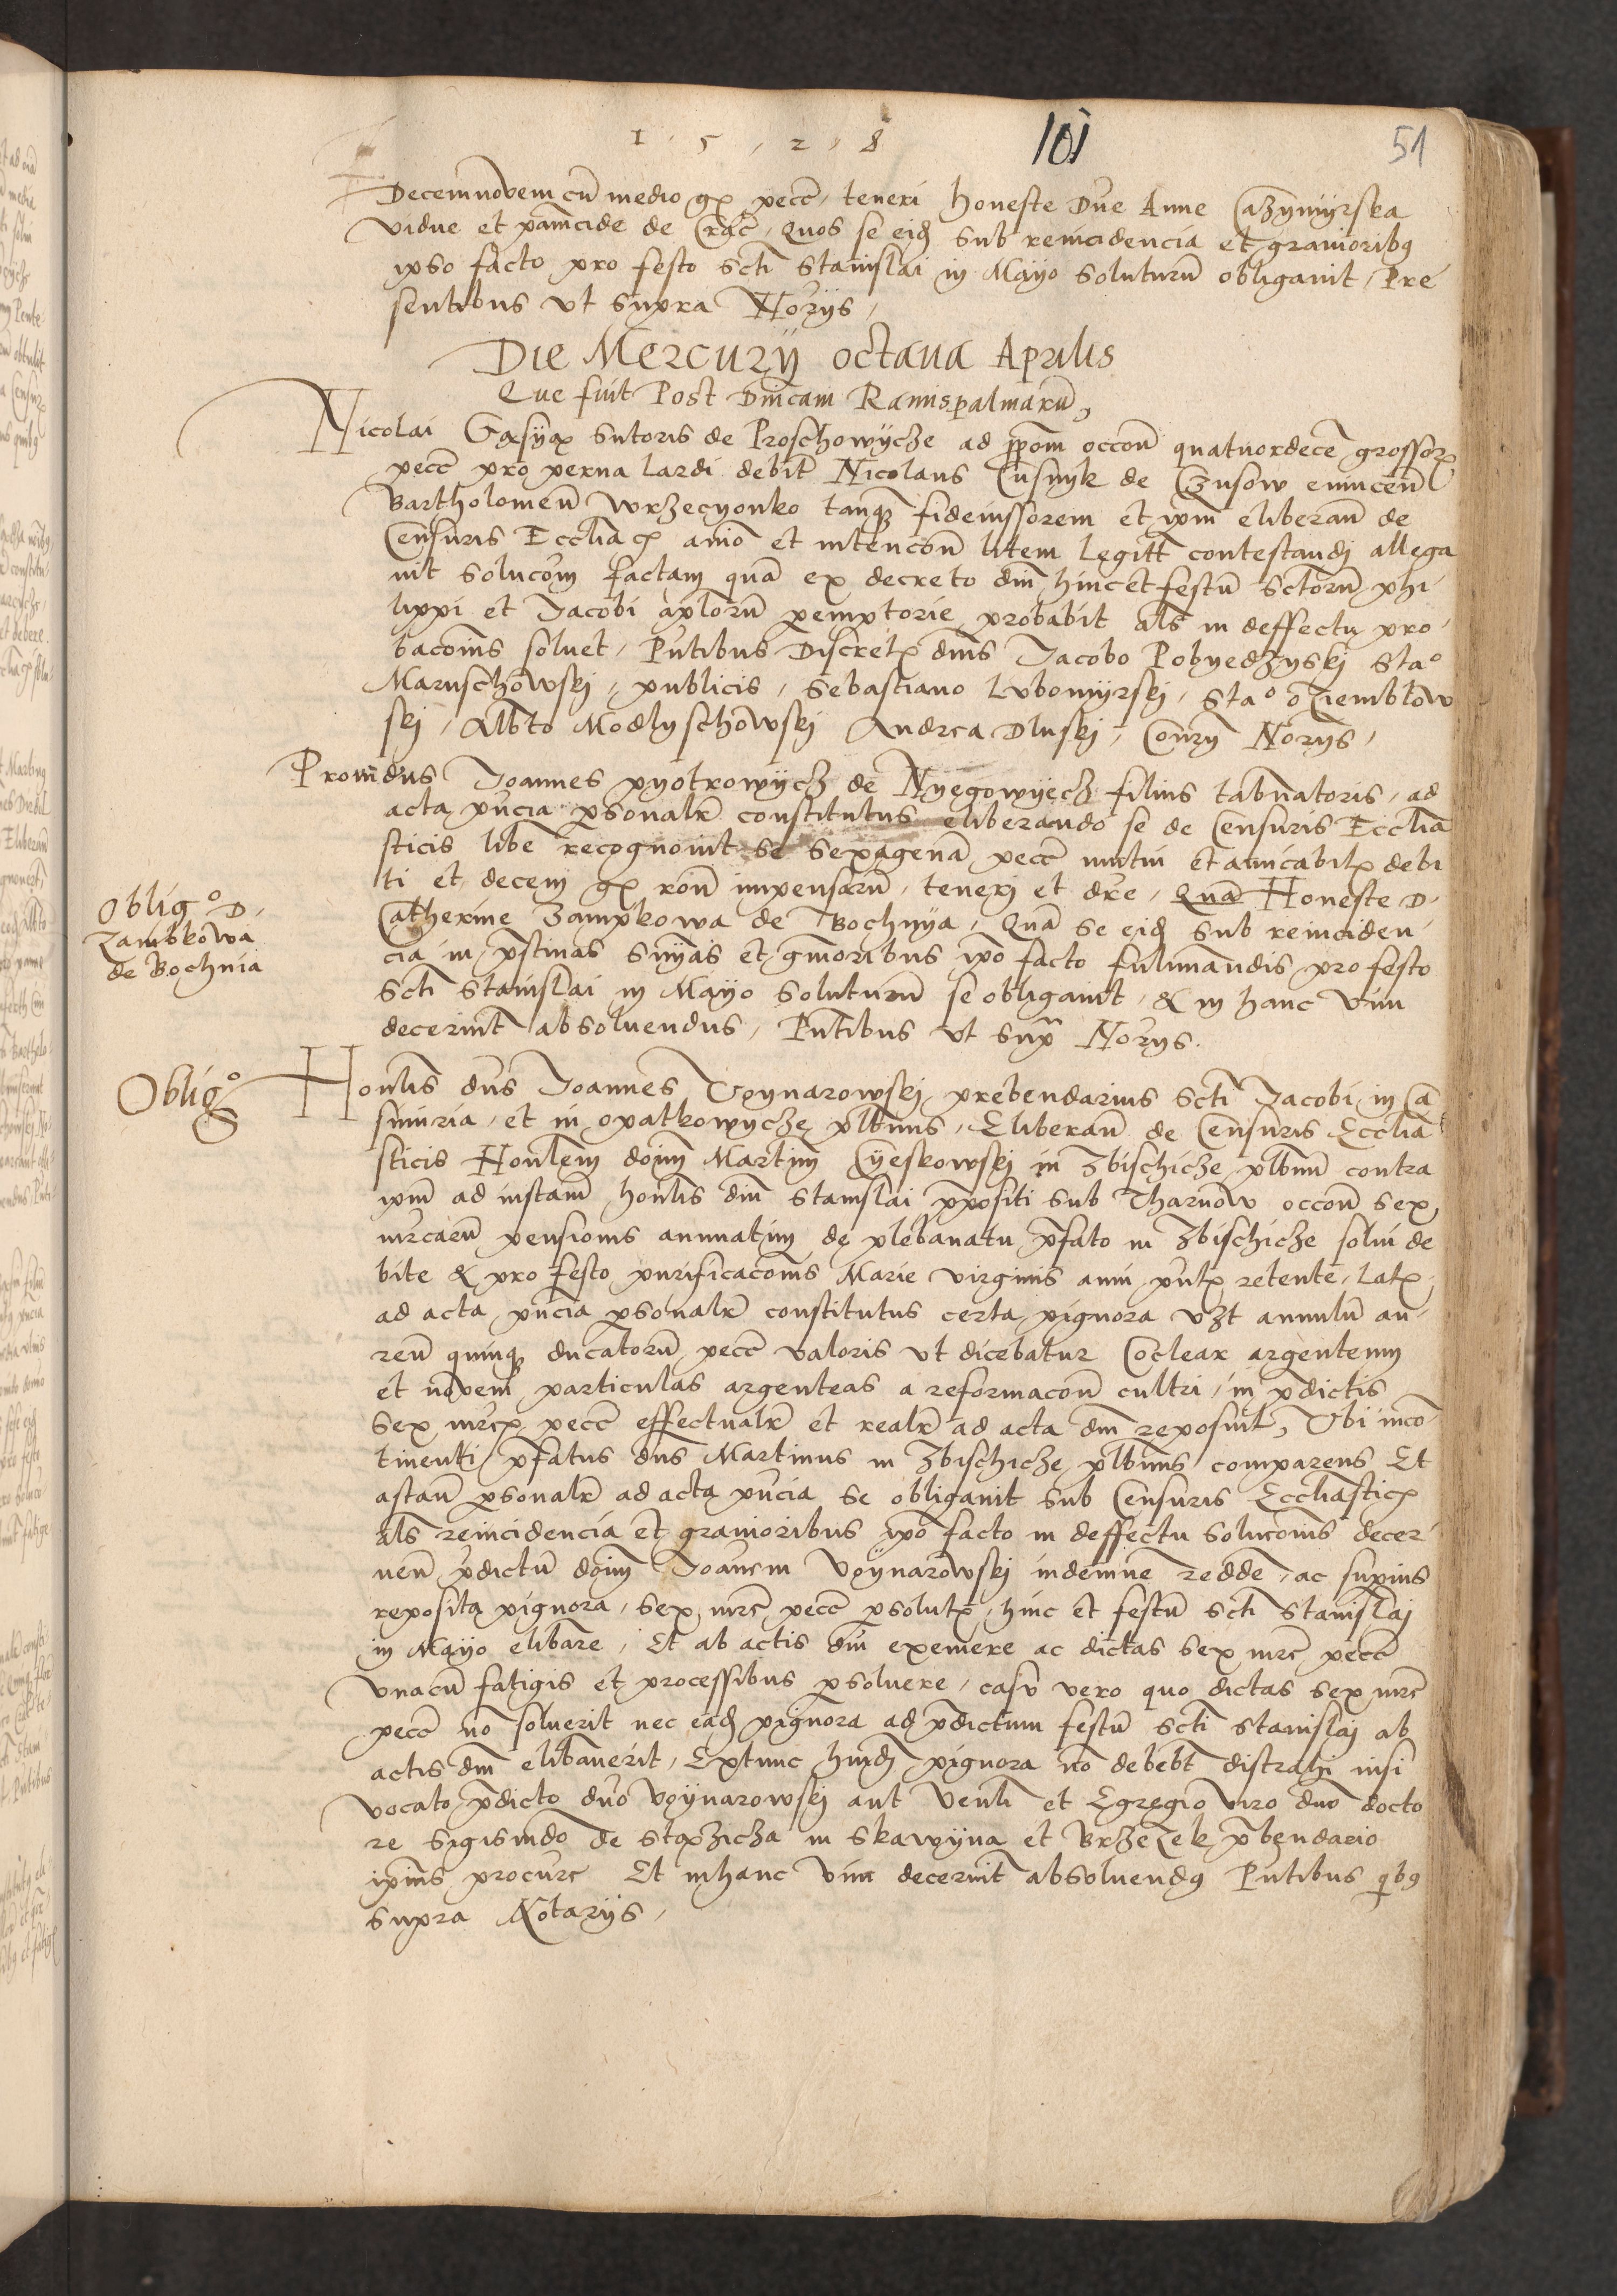 1 5 2 8
101
51
Decemnovem cū medio gͬ pecc̄ teneri honeste Dn̄e Anne Cazymyrska
vidue et pannicide de Crac̄, Quos se eidꝫ sub reincidencia et gravioribꝯ
ipso facto pro festo Scti Stanislai in Mayo soluturū obligavit, Pre
sentibus ut supra Notͬijs,
Die Mercurÿ octava Aprilis
Que fuit Post Dn̄icam Ramispalmarū,
Nicolai sutoris de Proschowÿcze ad occon̄ quatuordecē grossorͬ
pecc̄ pro perna lardi debit̄ Nicolaus Cusnyk de Czusow evincen̄
Bartholomeū Wrzecyonko tanqꝫ fideiussorem et ip̄m eliberan̄ de
Censuris Ecclīacͬ aīo et intencon̄ litem legitt̄ contestandi allega
vit solucom̄ factam quā ex decreto dn̄i hinc et festū Sctorū Phi
lippi et Jacobi ap̄lorū peremptorie probabit al̄s in deffectu pro
bacōnis solvet, Pn̄tibus Discretͬ dn̄is Jacobo Pobyedzyski Sta°
Maruschowski, publicis, Sebastiano Lubomÿrski, Sta° Ociemblow
ski, Alb̄to Modlyschowski Andrea Dluski, Con̄rij Notͬijs,
Provid̄us Joannes Pyotrowÿcz de Nyegowÿecz filius tabn̄atoris, ad
acta pn̄cia psonalr̄ constitutus eliberando se de Censuris Ecclīa
sticis libē recognovit se sexagenā pecc̄ mutui et amicabilͬ debi
ti et decem gͬ rōn̄ impensarū, teneri et dr̄e, Quā Honeste D.
Catherine Zampkowa de Bochnya, Quā se eidꝫ sub reinciden
cia in pr̄stinas sn̄ÿas et gn̄ioribus ip̄o facto fulminandis pro festo
Scti Stanislai in Mayo soluturū se obligavit, & in hanc vim
decernit̄ absolvendus, Pn̄tibus ut supͬ Notͬijs.
Oblig° D.
Zambkowa
de Bochnia
Oblig°
Honl̄is dn̄s Joannes Voynarowski, prebendarius Scti Jacobi in Ca
simiria, et in Opatkowycze plb̄nus, Eliberan̄ de Censuris Ecclīa
sticis Honl̄em dom̄ Martinū Cÿeskowski in Zbischicze plb̄nū contra
ip̄m ad instan̄ honl̄is dn̄i Stanislai ppositi sub Tharnow occon̄ sex
mr̄carū pensionis annuatim de plebanatu pfato in Zbischicze solvi de
bite & pro festo purificacōnis Marie virginis anni pn̄tͬ retente, latͬ
ad acta pn̄cia psonalr̄ constitutus certa pignora vꝫt annulū au
reū quinqꝫ ducatorū pecc̄ valoris ut dicebatur Coclear argenteum
et novem particulas argenteas a reformacon̄ cultri, in pdictis
sex mr̄cͬ pecc̄ effectualr̄ et realr̄ ad acta dn̄i reposuit, Ubi inco
tinenti pfatus dn̄s Martinus in Zbischicze plb̄nus comparens Et
astan̄ psonalr̄ ad acta pn̄cia se obligavit sub Censuris Ecclīasticͬ
al̄s reincidencia et gravioribus ip̄o facto in deffectu solucōnis decer
nen̄ pdictū dom̄ Joan̄em Voynarowski indemne reddē, ac supius
reposita pignora, sex mr̄c pecc̄ psolutͬ, hinc et festū Scti Stanislai
in Mayo elibare, Et ab actis dn̄i exemere ac dictas sex mr̄c pecc̄
Unacū fatigis et processibus psolvere, casū vero quo dictas sex mr̄c
pecc̄ nō solverit nec eadꝫ pignora ad pdictum festū Scti Stanislai ab
actis dn̄i elibaverit, Extunc hmōi pignora nō debebt̄ distrahi nisi
vocato pdicto dn̄o Voÿnarowski aut Ven̄li et Egregio viro dn̄o docto
re Sigismdo de Stͬzicza in Skawÿna et Brzezek pbendario
ip̄ius procurͬ Et in hanc vim decernit̄ absolvendꝯ Pn̄tibus qͥbꝯ
supra Notarÿs,